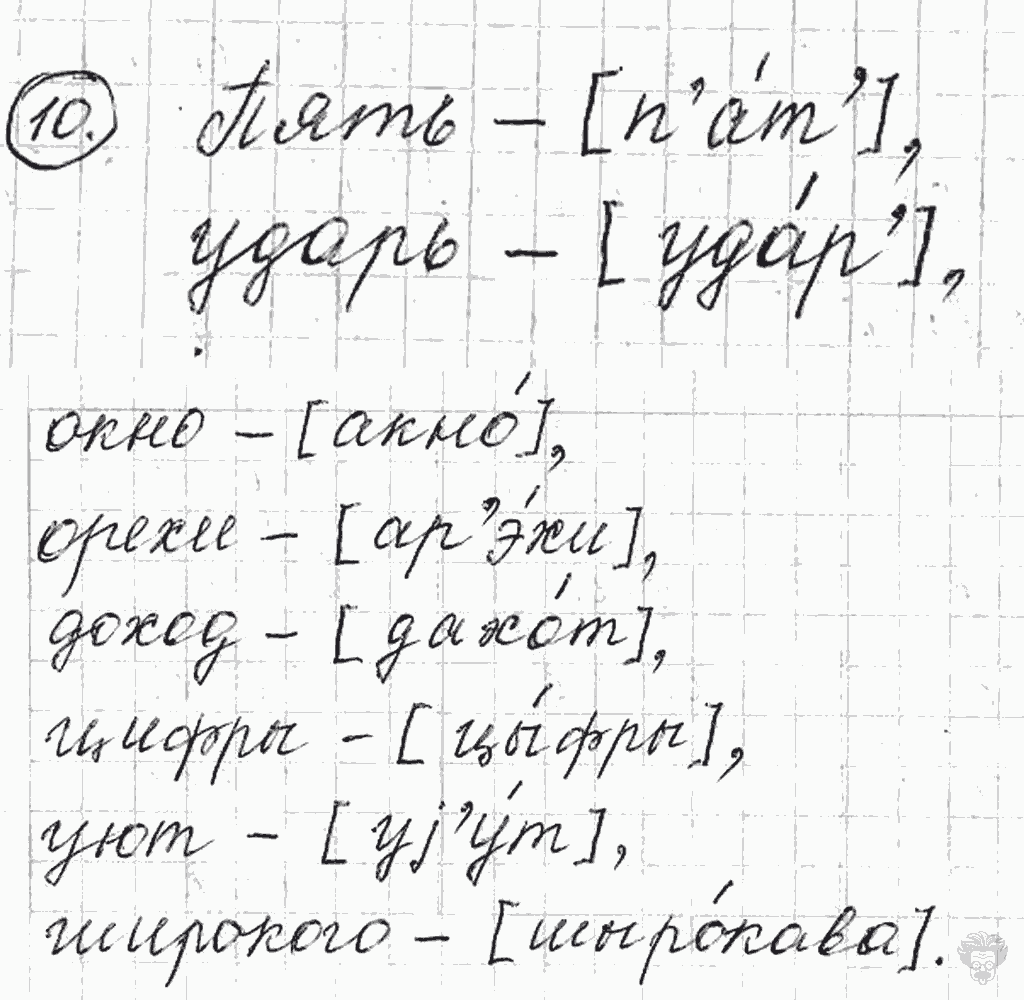 10. Пять – [п'а́т'],
ударь – [уда́р'],
окно – [акно́],
орехи – [ар'э́хи],
доход – [дахо́т],
цифры – [цы́фры],
уют – [уj'у́т],
широкого – [шыро́кава].